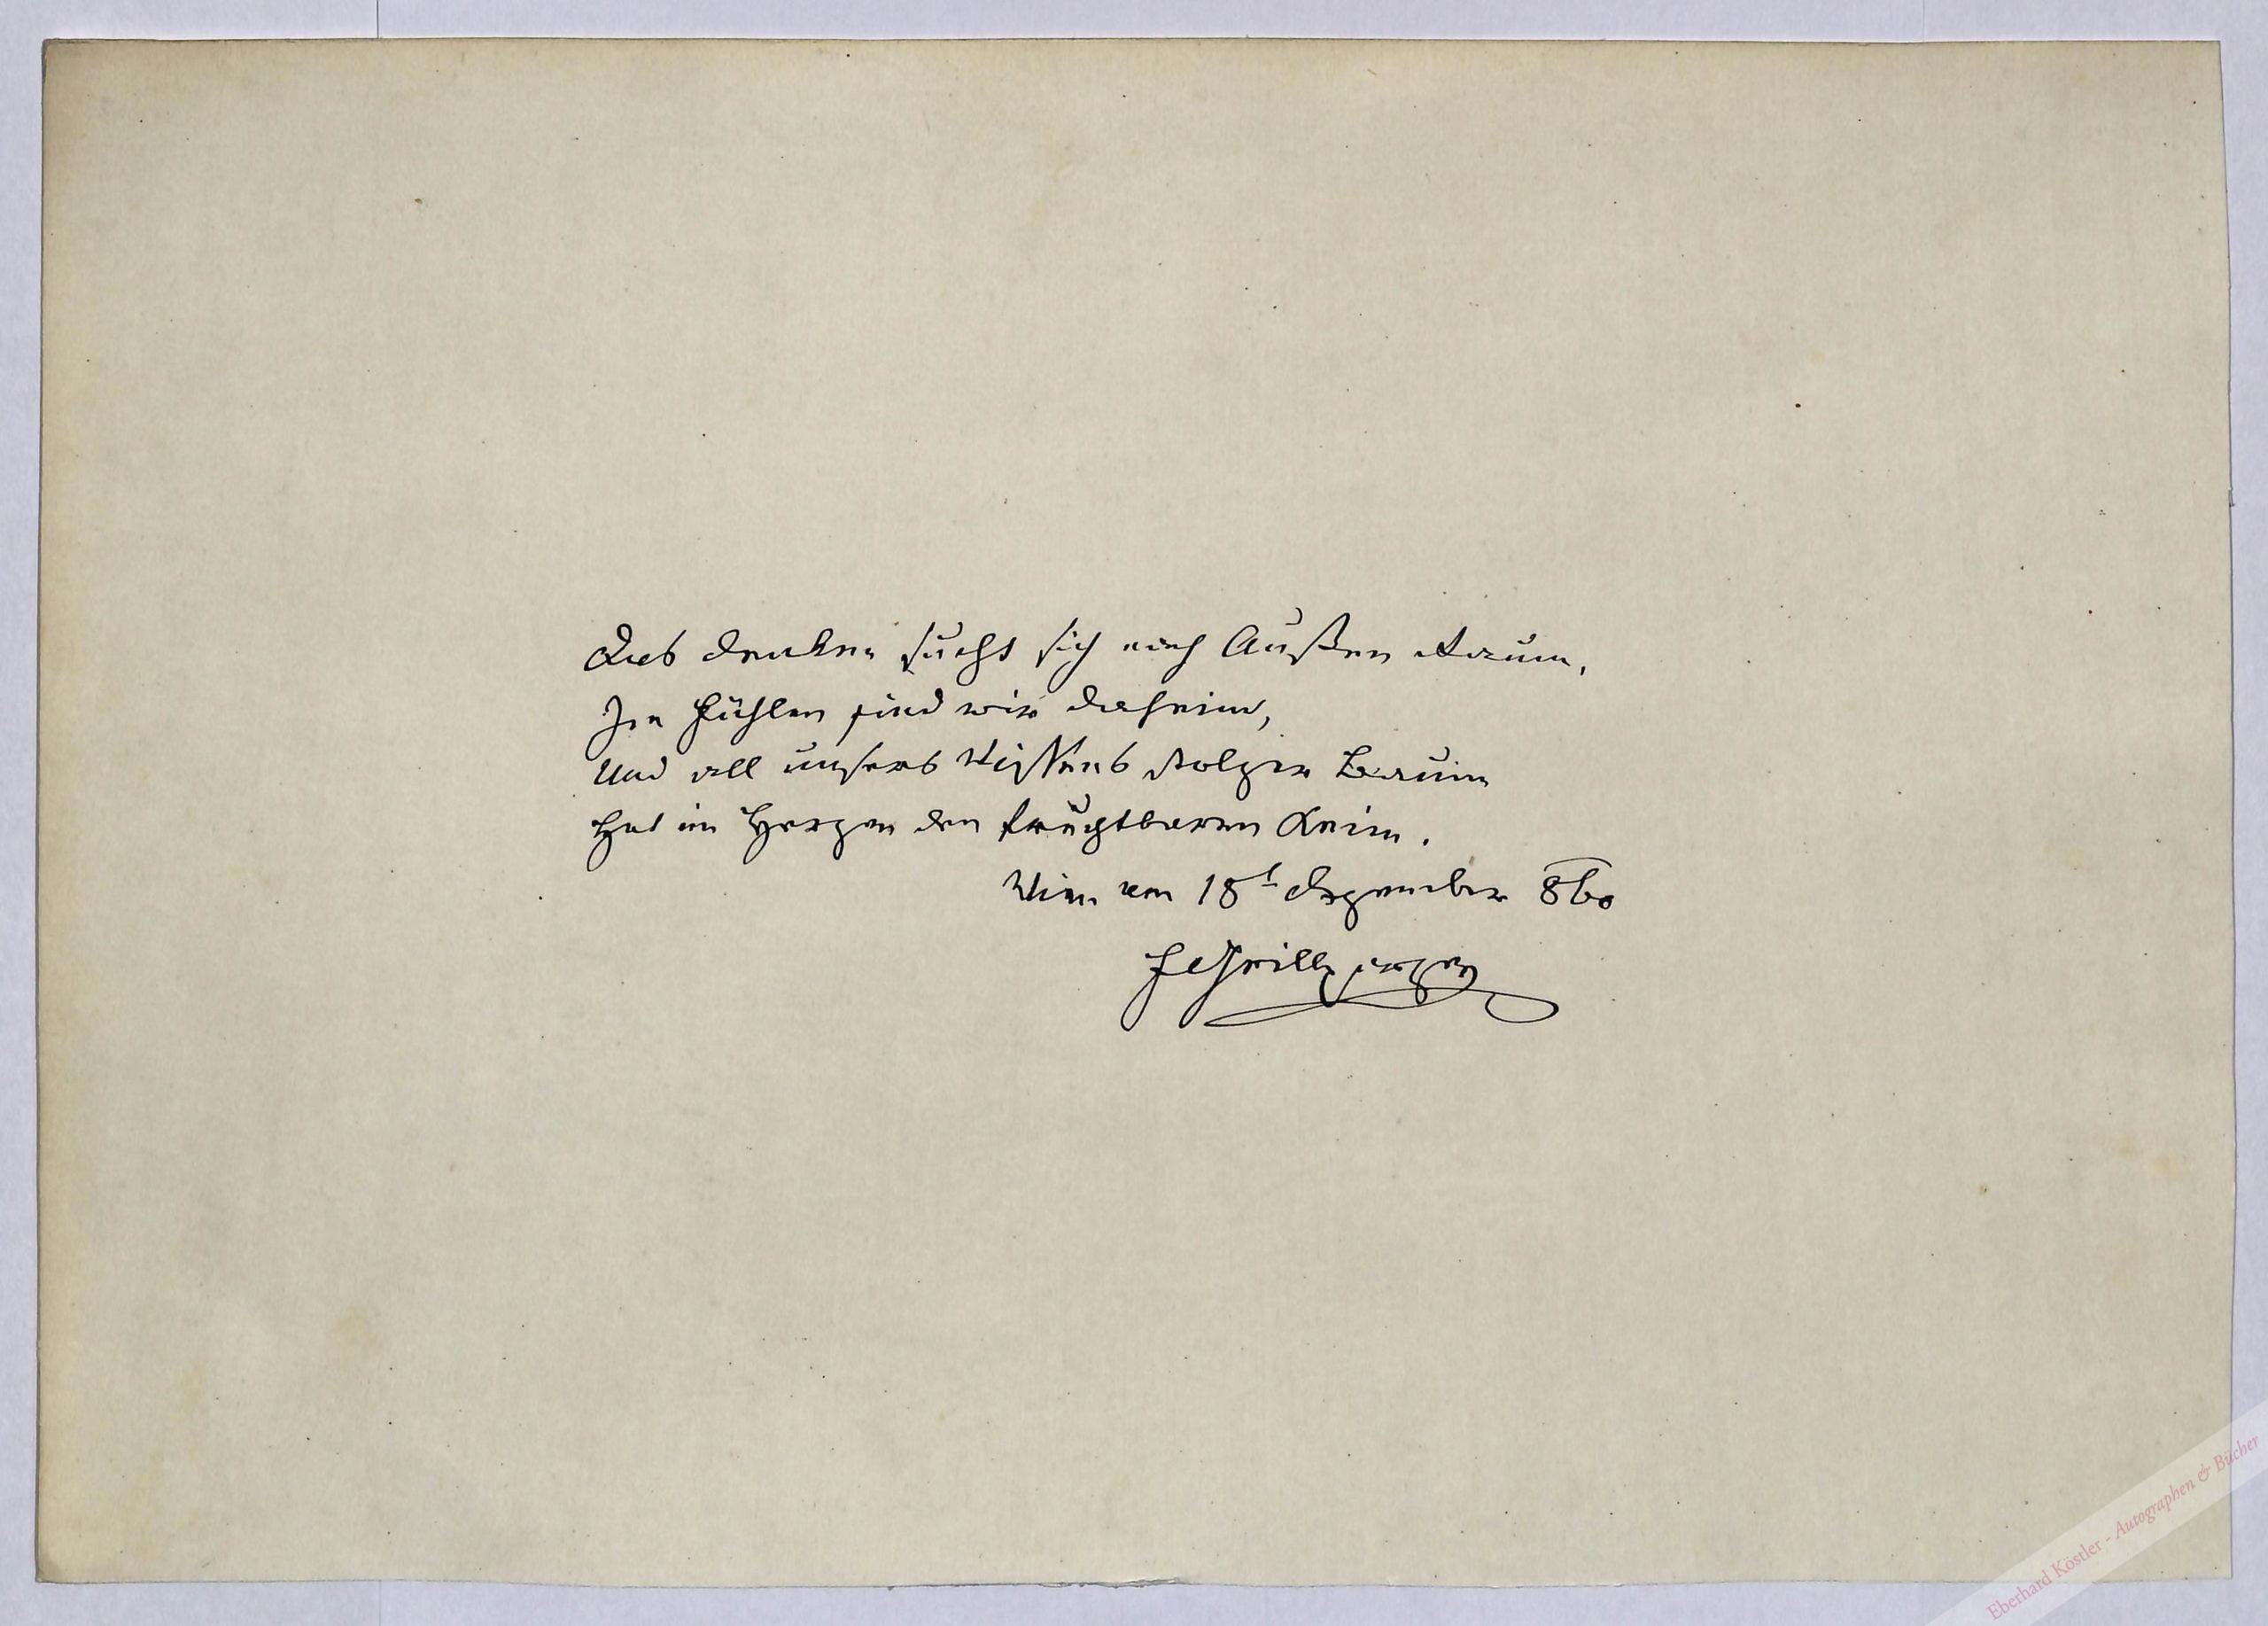 Das Denken sucht sich nach Außen Raum,
Im Fühlen sind wir daheim,
Und all unsers Wissens stolzer Baum
Hat im Herzen den fruchtbaren Keim.
Wien am 18t Dezember 860
FGrillparzer
Eberhard Köstler - Autographen & Bücher